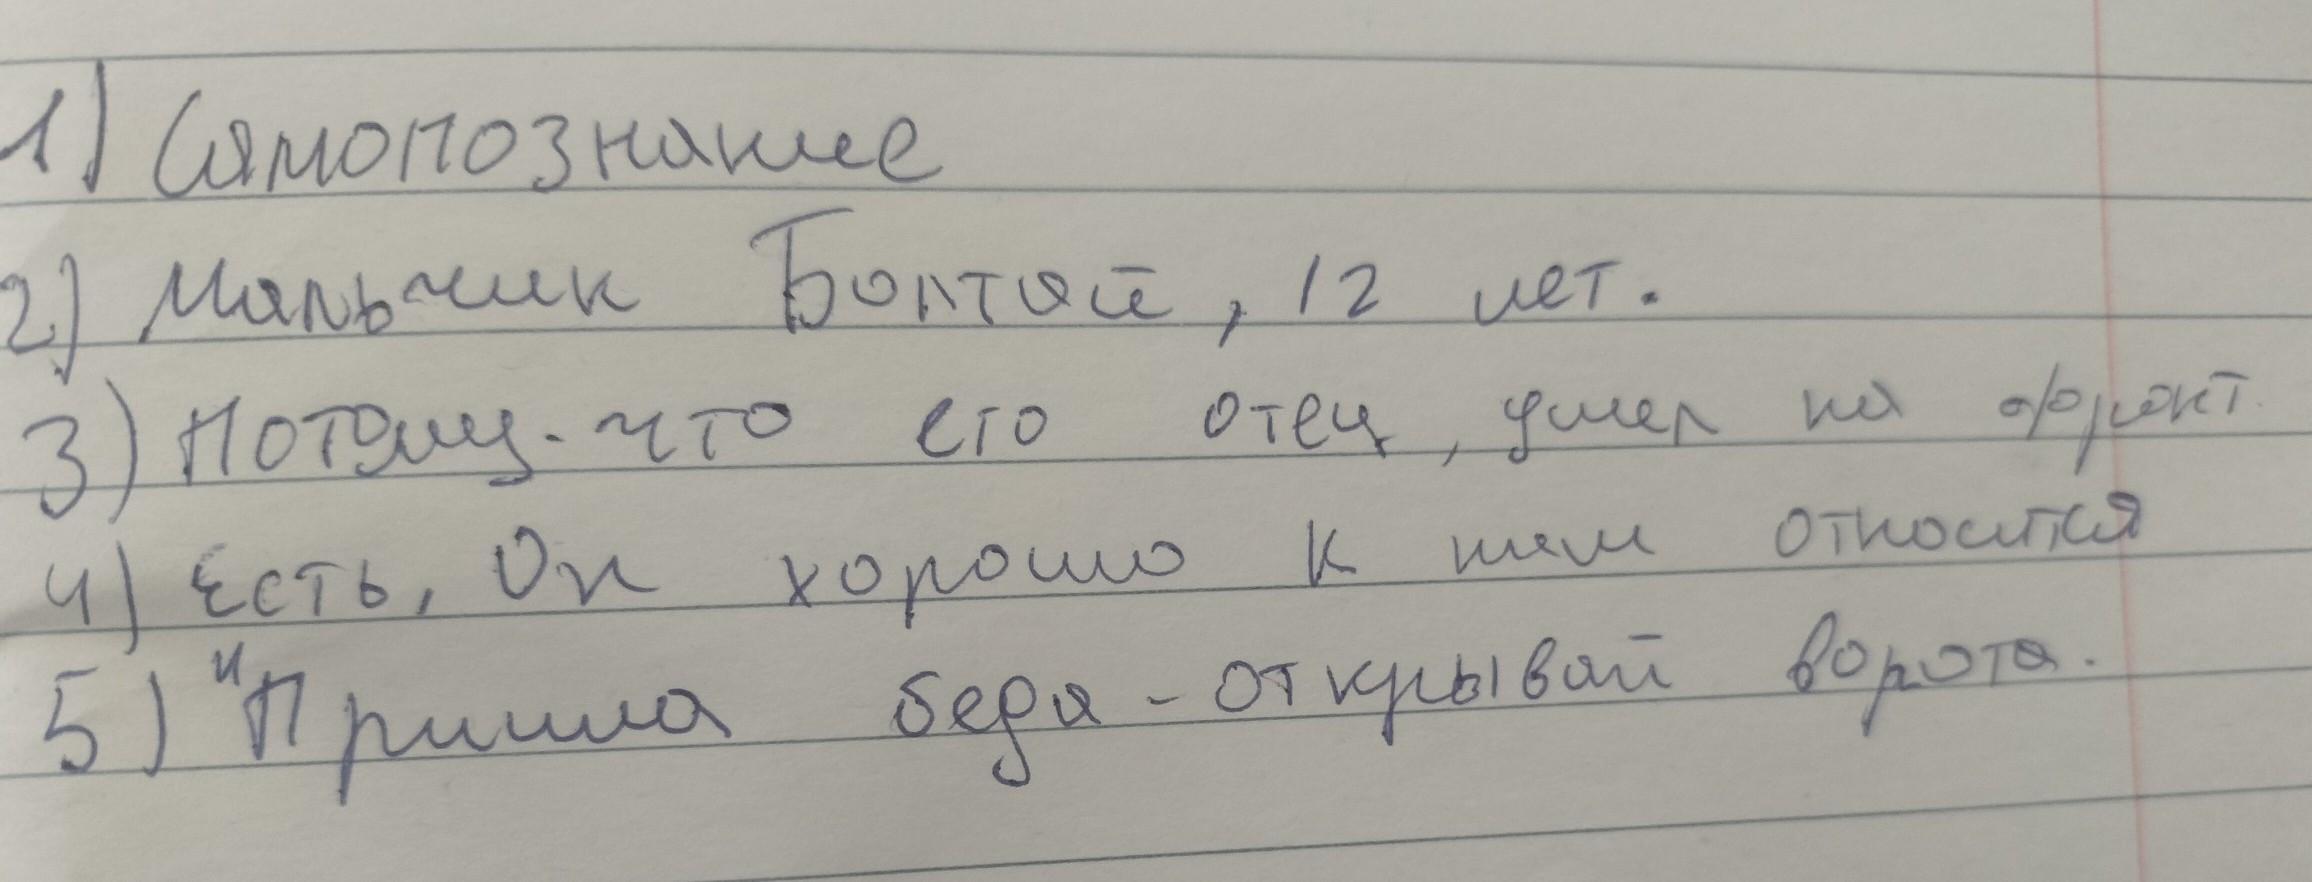 1) Самопознание
2) Мальчик Болтай, 12 лет.
3) Потому-что его отец, умер на фронт.
4) Есть, Он хорошо к ним относится
5) "Пришла беда - открывай ворота.